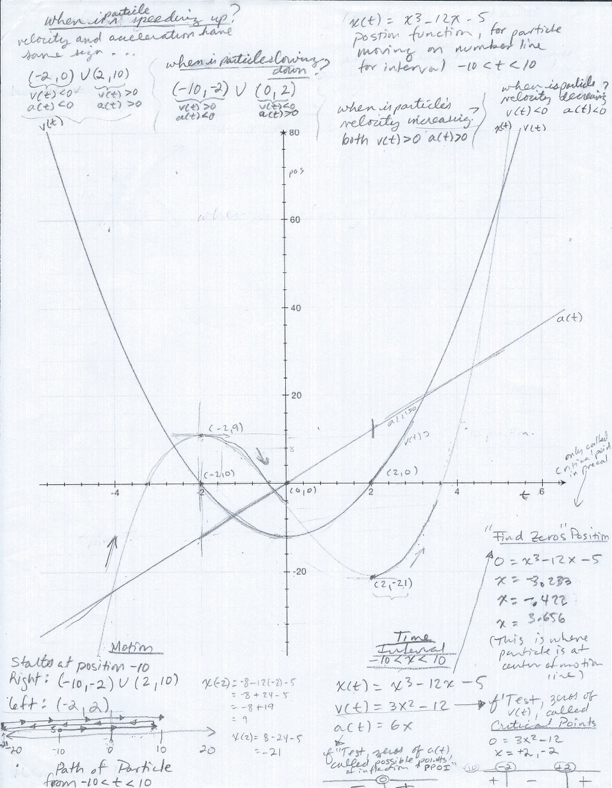 when is particle speeding up?
velocity and acceleration have
same sign ...
(-2,0) ∪ (2,10)
v(t)<0 v(t)>0
a(t)<0 a(t)>0
when is particle slowing
down?
(-10,-2) ∪ (0,2)
v(t)>0 v(t)<0
a(t)<0 a(t)>0
x(t) = x³-12x-5
position function, for particle
moving on number line
for interval -10<t<10
when is particles
velocity increasing?
both v(t)>0 a(t)>0
when is particle?
velocity decreasing
v(t)<0 a(t)<0
v(t)
x(t) v(t)
80
pos
60
40
20
-20
-4
-2
2
4
6
t
a(t)
a(t)>0
(-2,9)
(-2,0)
(0,0)
(2,0)
(2,-21)
only called
critical point
in precal
"Find Zeros" Position
0 = x³-12x-5
x = -3.233
x = -.422
x = 3.656
(This is where
particle is at
center of motion
line)
Motion
Starts at position -10
Right: (-10,-2) ∪ (2,10)
Left: (-2,2)
-20 -10 0 10 20
Path of Particle
from -10<t<10
x(-2) = -8-12(-2)-5
= -8+24-5
= -8+19
= 9
x(2) = 8-24-5
= -21
Time
Interval
-10<x<10
x(t) = x³-12x-5
v(t) = 3x²-12
a(t) = 6x
f' Test, zeros of
v(t), called
Critical Points
0 = 3x²-12
x = +2,-2
f" Test, zeros of a(t),
called possible points
of inflection PPOI
0
-2 +2
+ - +